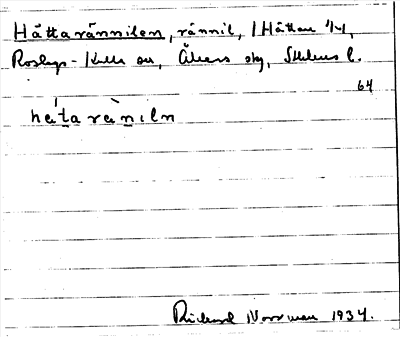 Håttarännilen, rännil, i Håttan 1/4,
Roslags-Kulla sn, Åkers skg, Sthlms l.
64
hátarènıln
Rickard Norrman 1934.